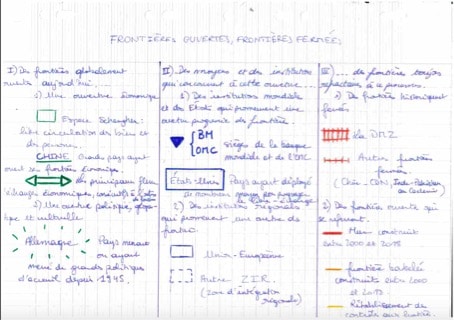 FRONTIÈRES OUVERTES, FRONTIÈRES FERMÉES
I) Des frontières globalement
ouvertes aujourd'hui...
1) Une ouverture économique
Espace Schengen :
libre circulation des biens et
des personnes.
CHINE Grands pays ayant
ouvert ses frontières économiques.
principaux flux
d'échanges économiques,
2) Une ouverture politique,
et culturelle
Allemagne Pays menant
ou ayant
mené de grandes politiques
d'accueil depuis 1945.
II) Des moyens et des institutions
qui concourent à cette ouverture...
1) Des institutions mondiales
et des Etats qui promeuvent une
ouverture progressive des frontières.
BM
OMC
sièges de la banque
mondiale et de l'OMC.
États-Unis Pays ayant déployé
de nombreux
2) Des institutions régionales
qui promeuvent une ouverture des
frontières.
Union Européenne
Autres Z.I.R.
(zone d'intégration
régionale)
III) ... des frontières toujours
à ce processus.
1) Des frontières historiquement
fermées
La DMZ
Autres frontières
fermées
2) Des frontières ouvertes qui
se referment.
Murs construits
entre 2000 et 2015
frontière barbelée
construite entre 2000
et 2015.
Rétablissement de
contrôle aux frontières.